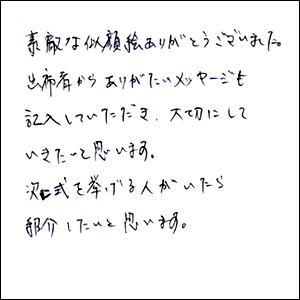 素敵な似顔絵ありがとうございました。
出席者からありがたいメッセージも
記入していただき、大切にして
いきたいと思います。
次に式を挙げる人がいたら
紹介したいと思います。